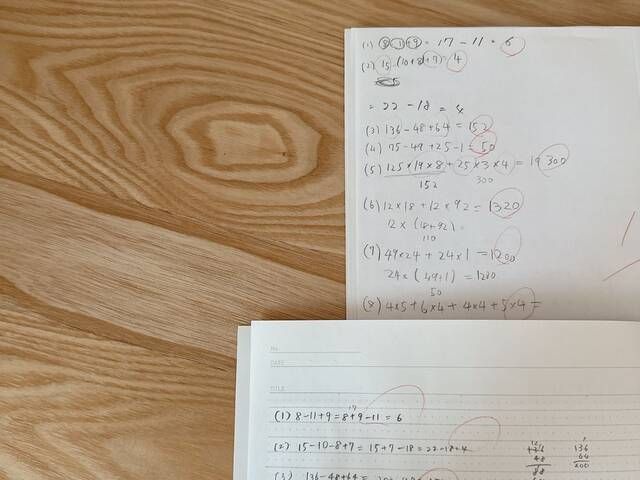 (1) 8-11+9 = 17 - 11 = 6
(2) 15-(10+8)+7) = 4
= 22 - 18 = 4
(3) 136 - 48 + 64 = 152
(4) 75 - 49 + 25 - 1 = 50
(5) 125×19×8 + 25×3×4 = 19300
152 300
(6) 12×18 + 12×92 = 1320
12 × (18+92) =
110
(7) 49×24 + 24×1 = 1200
24× ( 49+1) = 1200
50
(8) 4×5 + 6×4 + 4×4 + 5×4 =
No.
DATE
TITLE
17
(1) 8-11+9 = 8+9-11 = 6
(2) 15-10-8+7 = 15+7-18 = 22-18=4
(3) 136-48+64 =
136
64
200
48